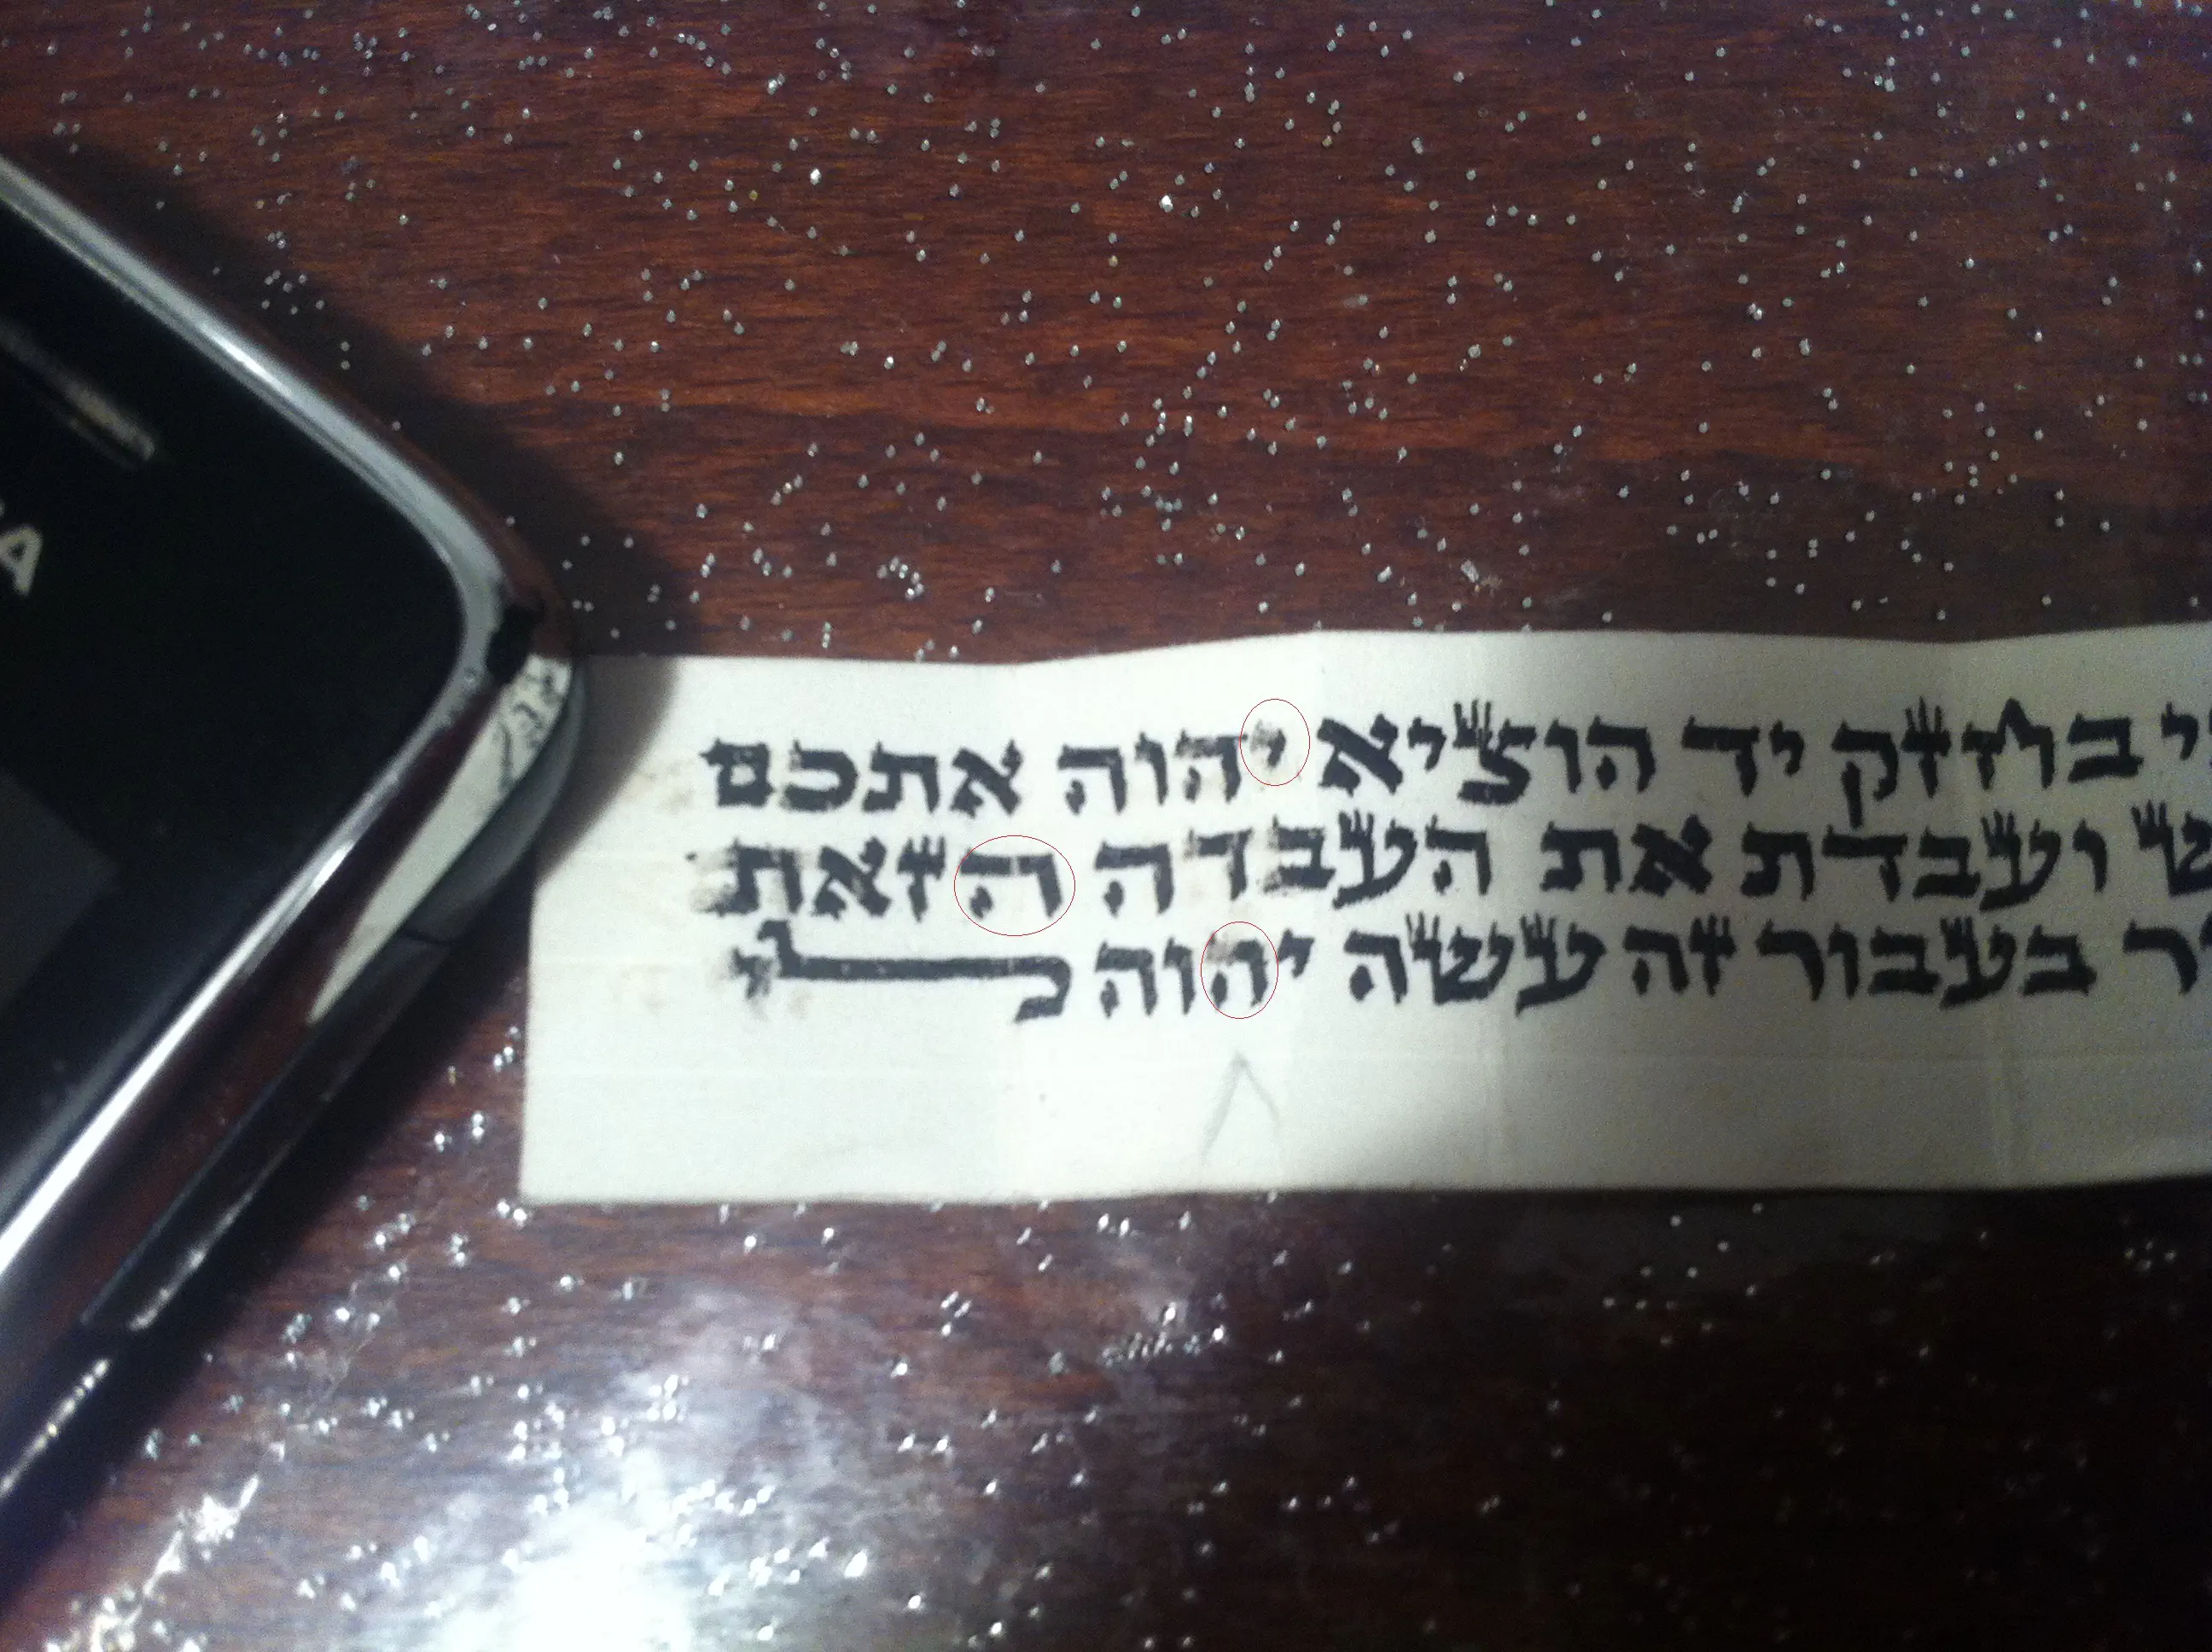 י בחזק יד הוציא יהוה אתכם
ש ועבדת את העבדה הזאת
ר בעבור זה עשה יהוה לי
A